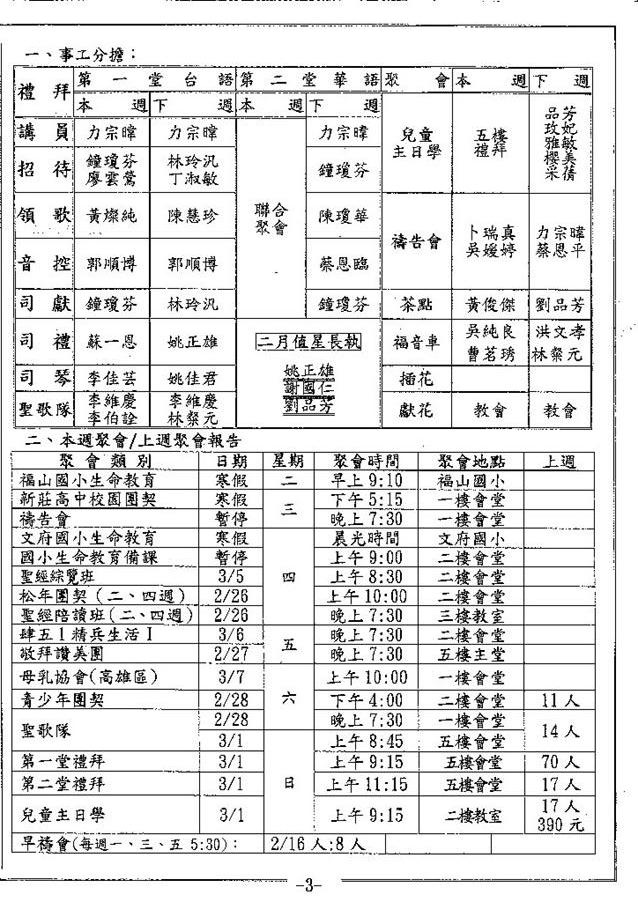 一、事工分擔：
禮拜 第一堂台語 第二堂華語 聚會 本週 下週
本週 下週 本週 下週
講員 力宗暐 力宗暐 聯合聚會 力宗暐 兒童主日學 五樓禮拜 品芳 玫妃 雅敏 櫻美 采蒨
招待 鐘瓊芬 廖雲鶯 林玲汎 丁淑敏 鐘瓊芬
領歌 黃燦純 陳慧珍 陳瓊華 禱告會 卜瑞真 吳媛婷 力宗暐 蔡恩平
音控 郭順博 郭順博 蔡恩臨
司獻 鐘瓊芬 林玲汎 鐘瓊芬 茶點 黃俊傑 劉品芳
司禮 蘇一恩 姚正雄 二月值星長執 福音車 吳純良 曹茗琇 洪文孝 林粲元
司琴 李佳芸 姚佳君 姚正雄 謝國仁 劉品芳 插花
聖歌隊 李維慶 李伯詮 李維慶 林粲元 獻花 教會 教會
二、本週聚會/上週聚會報告
聚會類別 日期 星期 聚會時間 聚會地點 上週
福山國小生命教育 寒假 二 早上 9:10 福山國小
新莊高中校園團契 寒假 三 下午 5:15 一樓會堂
禱告會 暫停 晚上 7:30 一樓會堂
文府國小生命教育 寒假 四 晨光時間 文府國小
國小生命教育備課 暫停 上午 9:00 二樓會堂
聖經綜覽班 3/5 上午 8:30 二樓會堂
松年團契（二、四週） 2/26 上午 10:00 二樓會堂
聖經陪讀班(二、四週) 2/26 晚上 7:30 三樓教室
肆五I精兵生活I 3/6 五 晚上 7:30 二樓會堂
敬拜讚美團 2/27 晚上 7:30 五樓主堂
母乳協會(高雄區) 3/7 六 上午 10:00 一樓會堂
青少年團契 2/28 下午 4:00 二樓會堂 11 人
聖歌隊 2/28 晚上 7:30 一樓會堂 14 人
3/1 日 上午 8:45 五樓會堂
第一堂禮拜 3/1 上午 9:15 五樓會堂 70 人
第二堂禮拜 3/1 上午 11:15 五樓會堂 17 人
兒童主日學 3/1 上午 9:15 二樓教室 17 人 390 元
早禱會(每週一、三、五 5:30)： 2/16 人:8 人
-3-